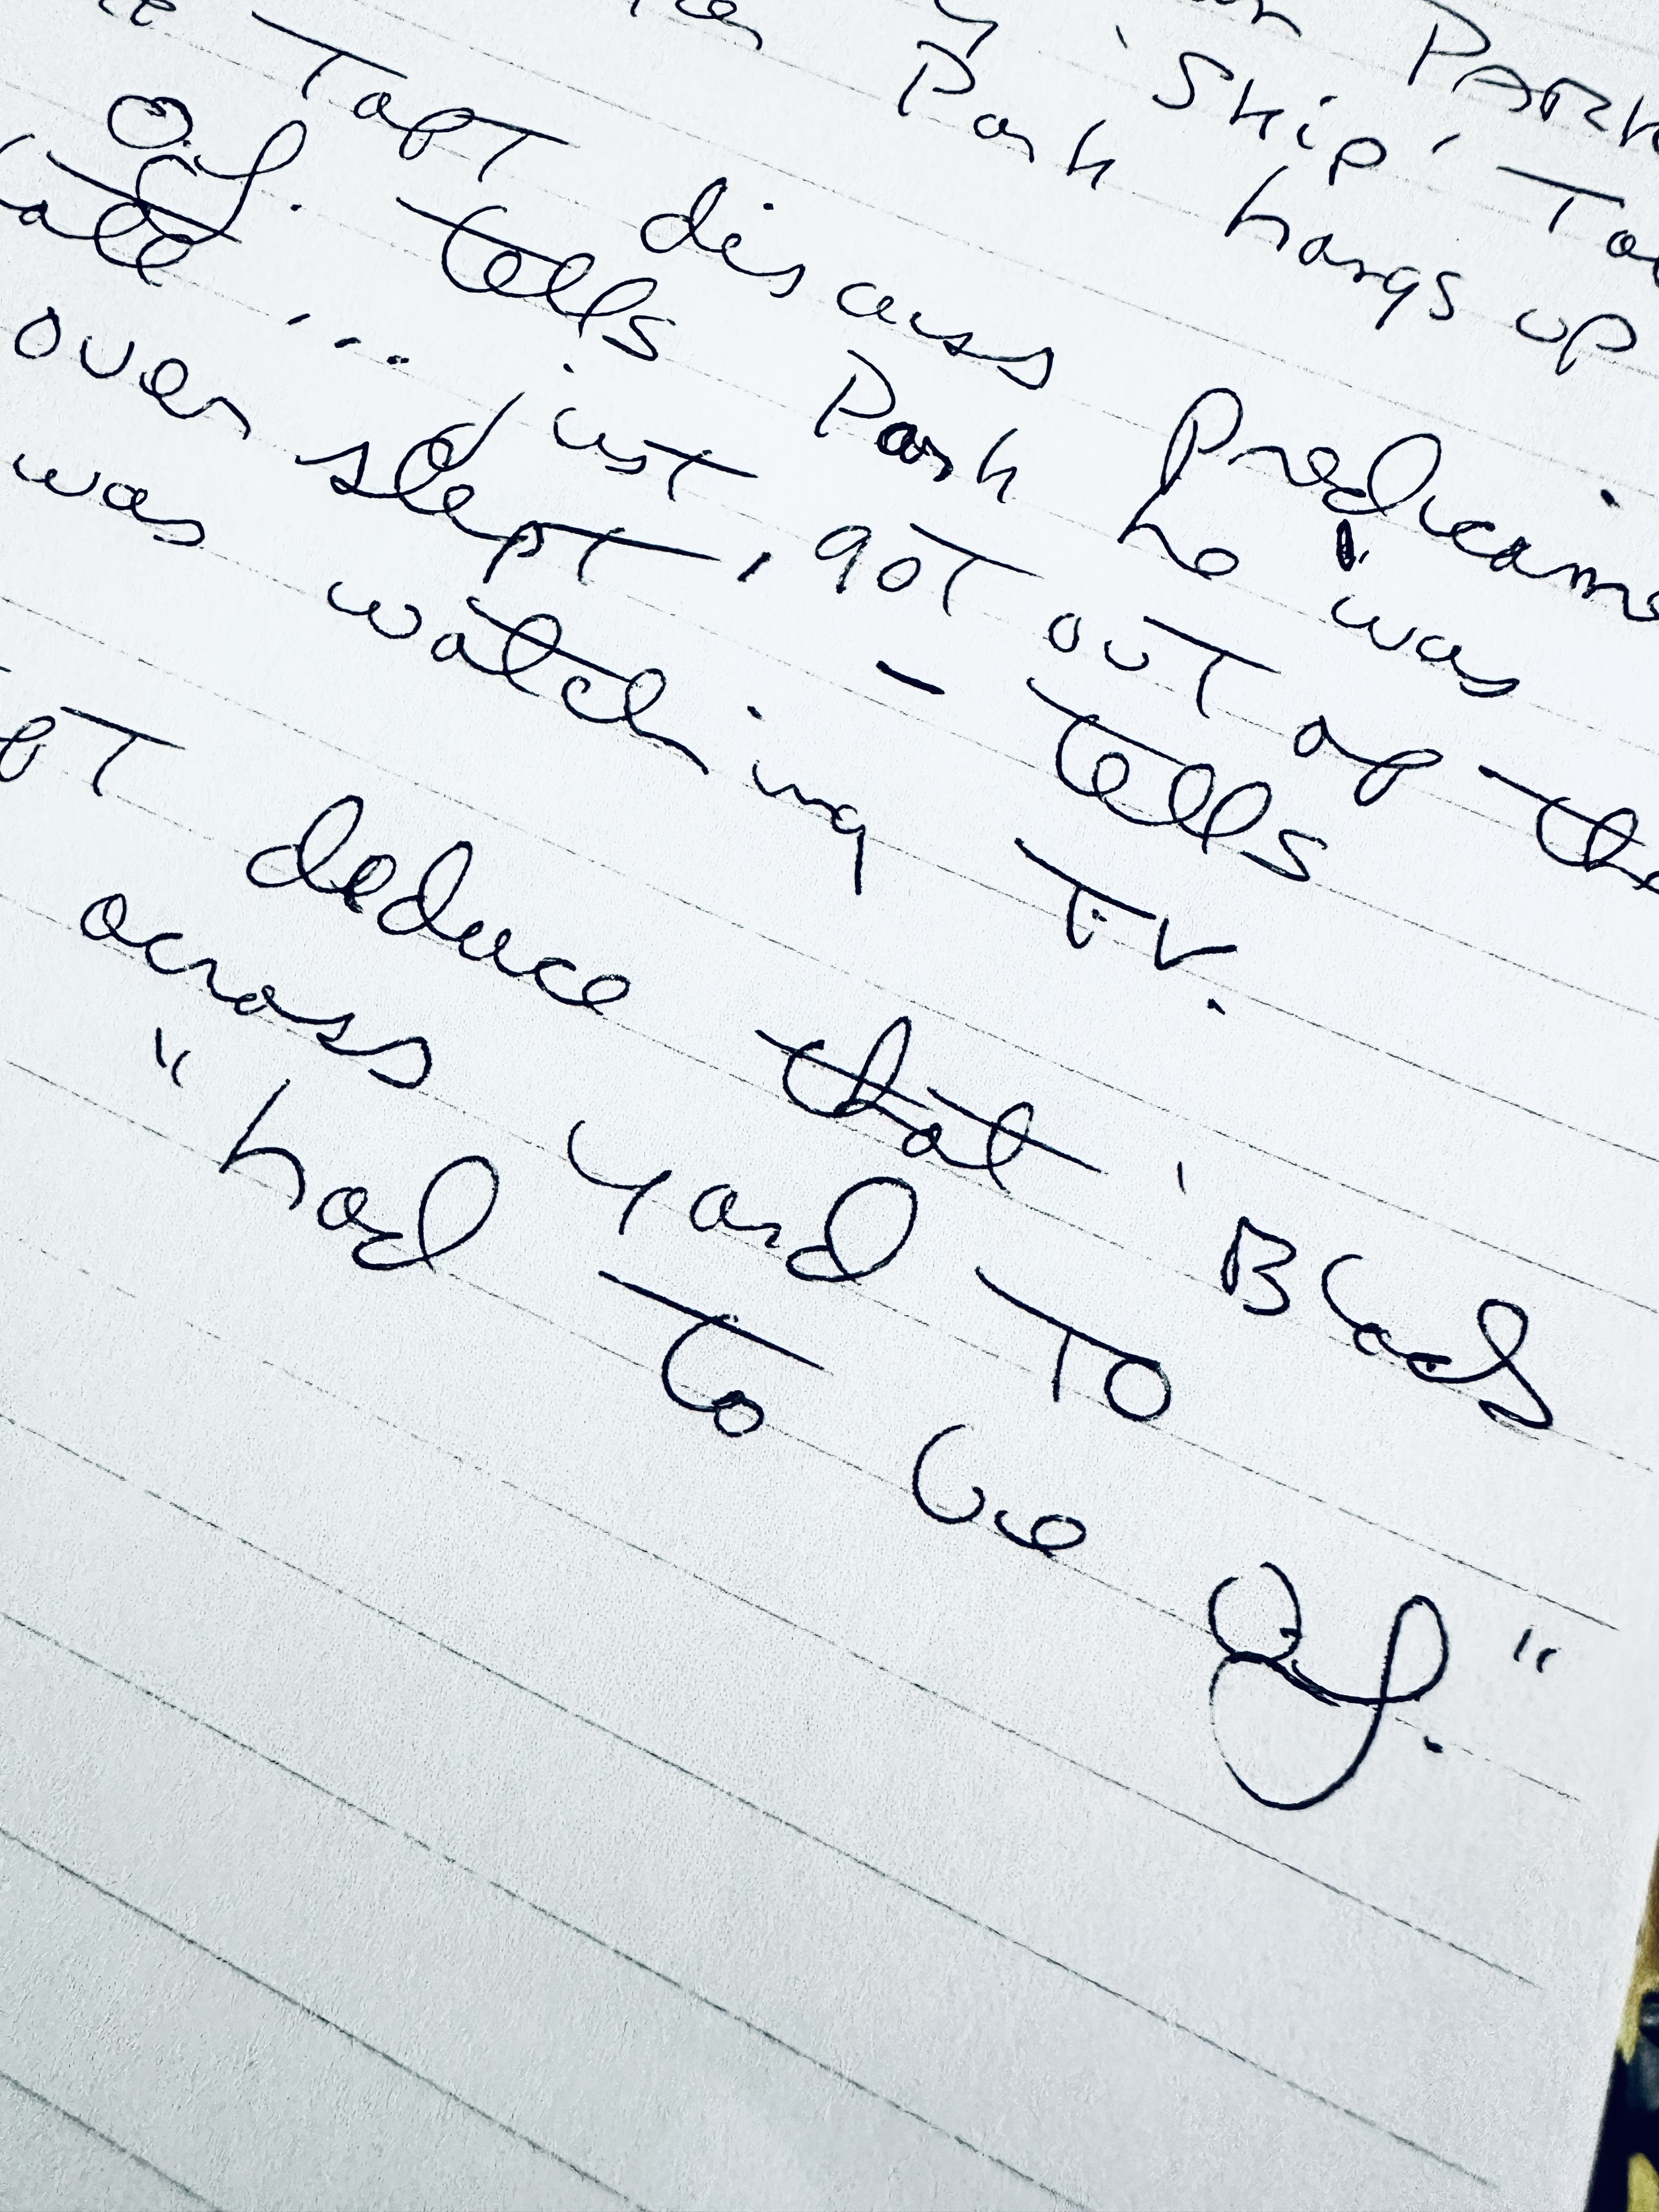 PARK
'Skip' Ta
Park hangs up
Taft discuss Predicame
O.J. tells Park he "was
late ... just got out of the
over slept, - tells
was watching T.V.
ft deduce that 'Black
across yard TO
"had to be O.J."